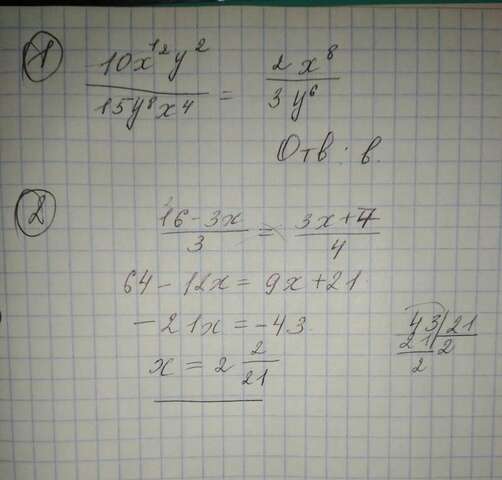 1
10x¹²y² / 15y⁸x⁴ = 2x⁸ / 3y⁶
Отв: в.
2
(16 - 3x) / 3 = (3x + 7) / 4
64 - 12x = 9x + 21
-21x = -43.
x = 2 2/21
43 | 21
21 | 2
2